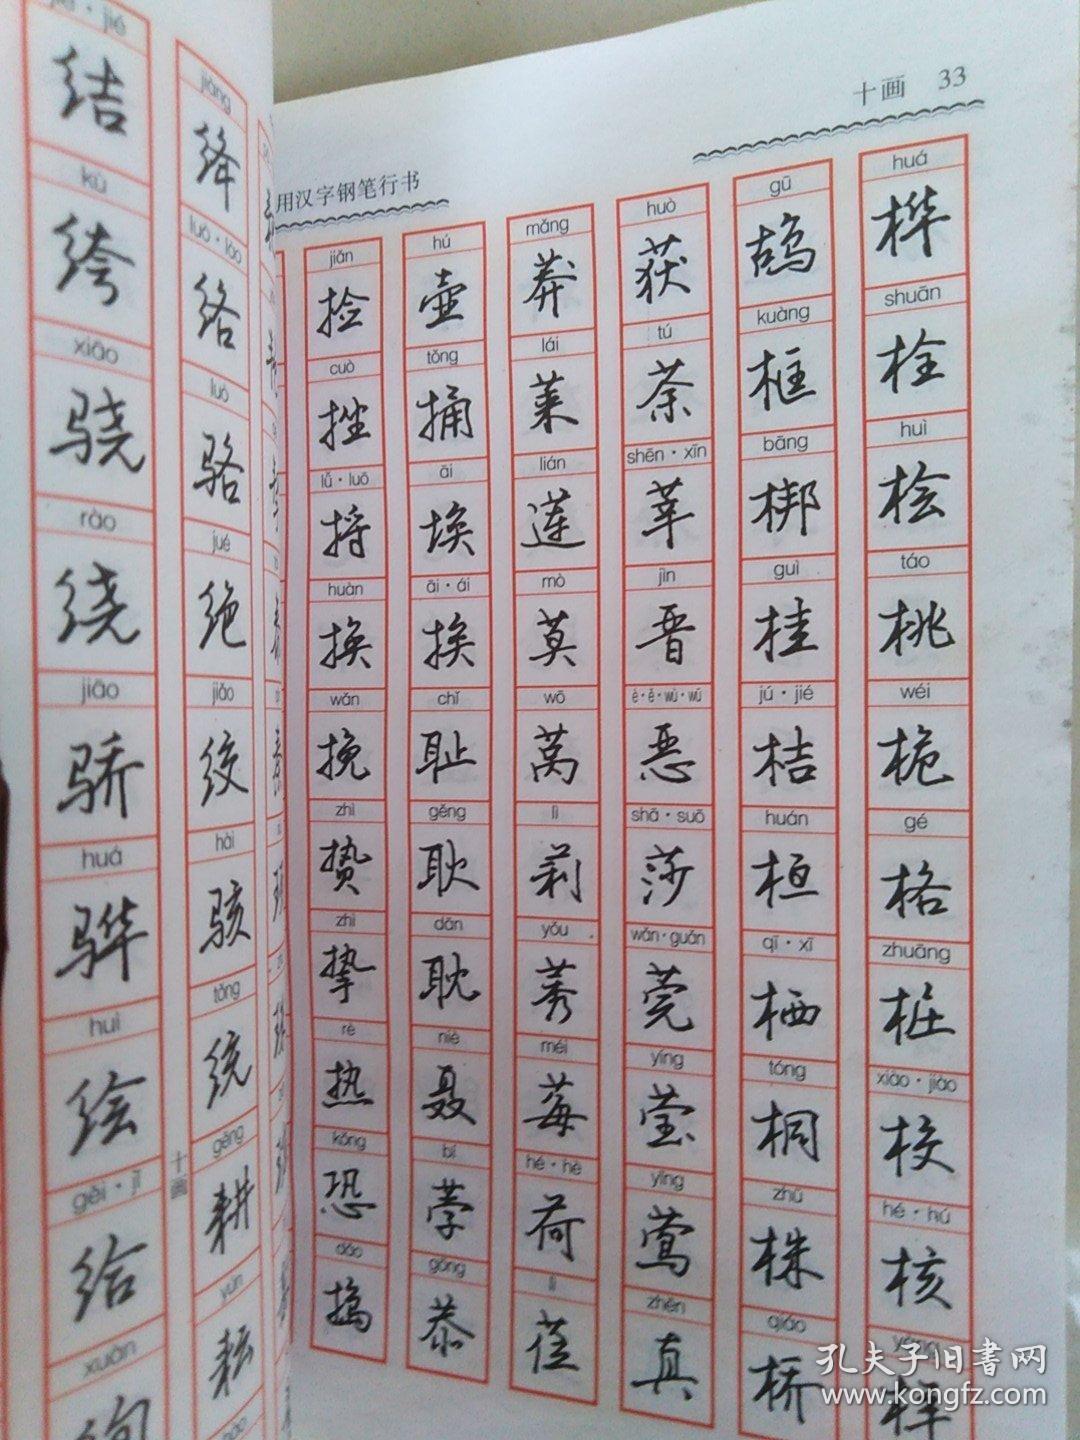 jié
结
kuà
绔
xiāo
骁
rào
绕
jiāo
骄
huá
骅
huì
绘
gěi·jǐ
给
xuàn
jiàng
绛
luò·lào
络
luò
骆
jué
绝
jiǎo
绞
hài
骇
tǒng
统
gēng
耕
yún
耘
十画
用汉字钢笔行书
十画 33
jiǎn
捡
cuò
挫
lǚ·luō
捋
huàn
换
wǎn
挽
zhì
贽
zhì
挚
rè
热
kǒng
恐
dǎo
捣
hú
壶
tǒng
捅
āi
埃
āi·ái
挨
chǐ
耻
gěng
耿
dān
耽
niè
聂
bí
荸
gōng
恭
mǎng
莽
lái
莱
lián
莲
mò
莫
wō
莴
lì
莉
yǒu
莠
méi
莓
hé·hè
荷
lì
莅
huò
获
tú
荼
shēn·xīn
莘
jìn
晋
è·ě·wù·wū
恶
shā·suō
莎
wǎn·guǎn
莞
yíng
莹
yīng
莺
zhēn
真
gū
鸪
kuàng
框
bāng
梆
guì
桂
jú·jié
桔
huán
桓
qī·xī
栖
tóng
桐
zhū
株
qiáo
桥
huá
桦
shuān
栓
huì
桧
táo
桃
wéi
桅
gé
格
zhuāng
桩
xiào·jiào
校
hé·hú
核
样
孔夫子旧书网
www.kongfz.com